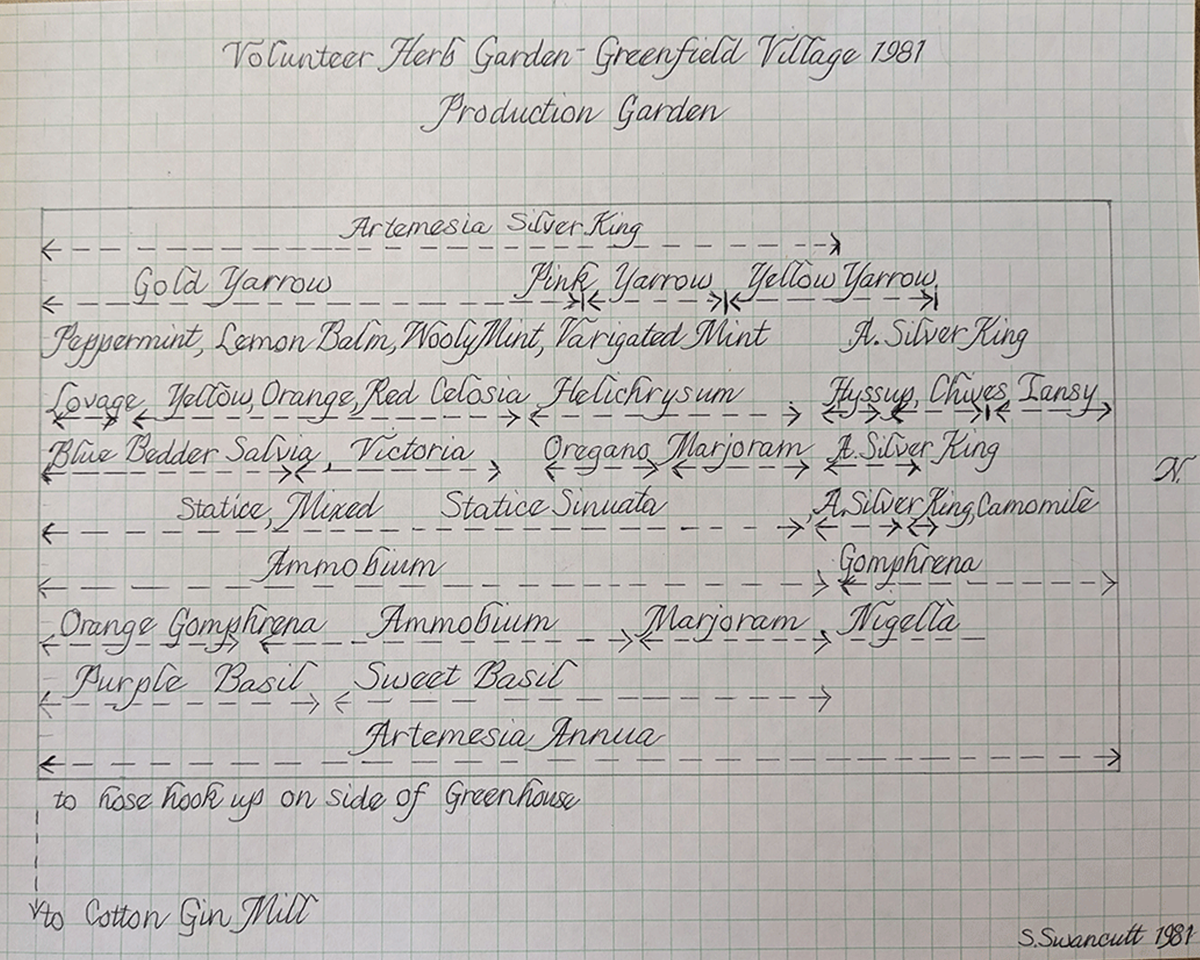 Volunteer Herb Garden - Greenfield Village 1981
Production Garden
Artemesia Silver King
Gold Yarrow Pink Yarrow Yellow Yarrow
Peppermint, Lemon Balm, Wooly Mint, Varigated Mint A. Silver King
Lovage Yellow, Orange, Red Celosia Helichrysum Hyssup, Chives, Tansy
Blue Bedder Salvia, Victoria Oregano Marjoram A. Silver King
N.
Statice, Mixed Statice Sinuata A. Silver King, Camomile
Ammobium Gomphrena
Orange Gomphrena Ammobium Marjoram Nigella
Purple Basil Sweet Basil
Artemesia Annua
to hose hook up on side of Greenhouse
to Cotton Gin Mill
S. Swancutt 1981